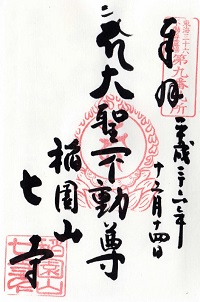 奉拝
東海三十六
第九番札所
平成二十六年
十二月十四日
大聖不動尊
稲園山
七寺
稲園山
七寺